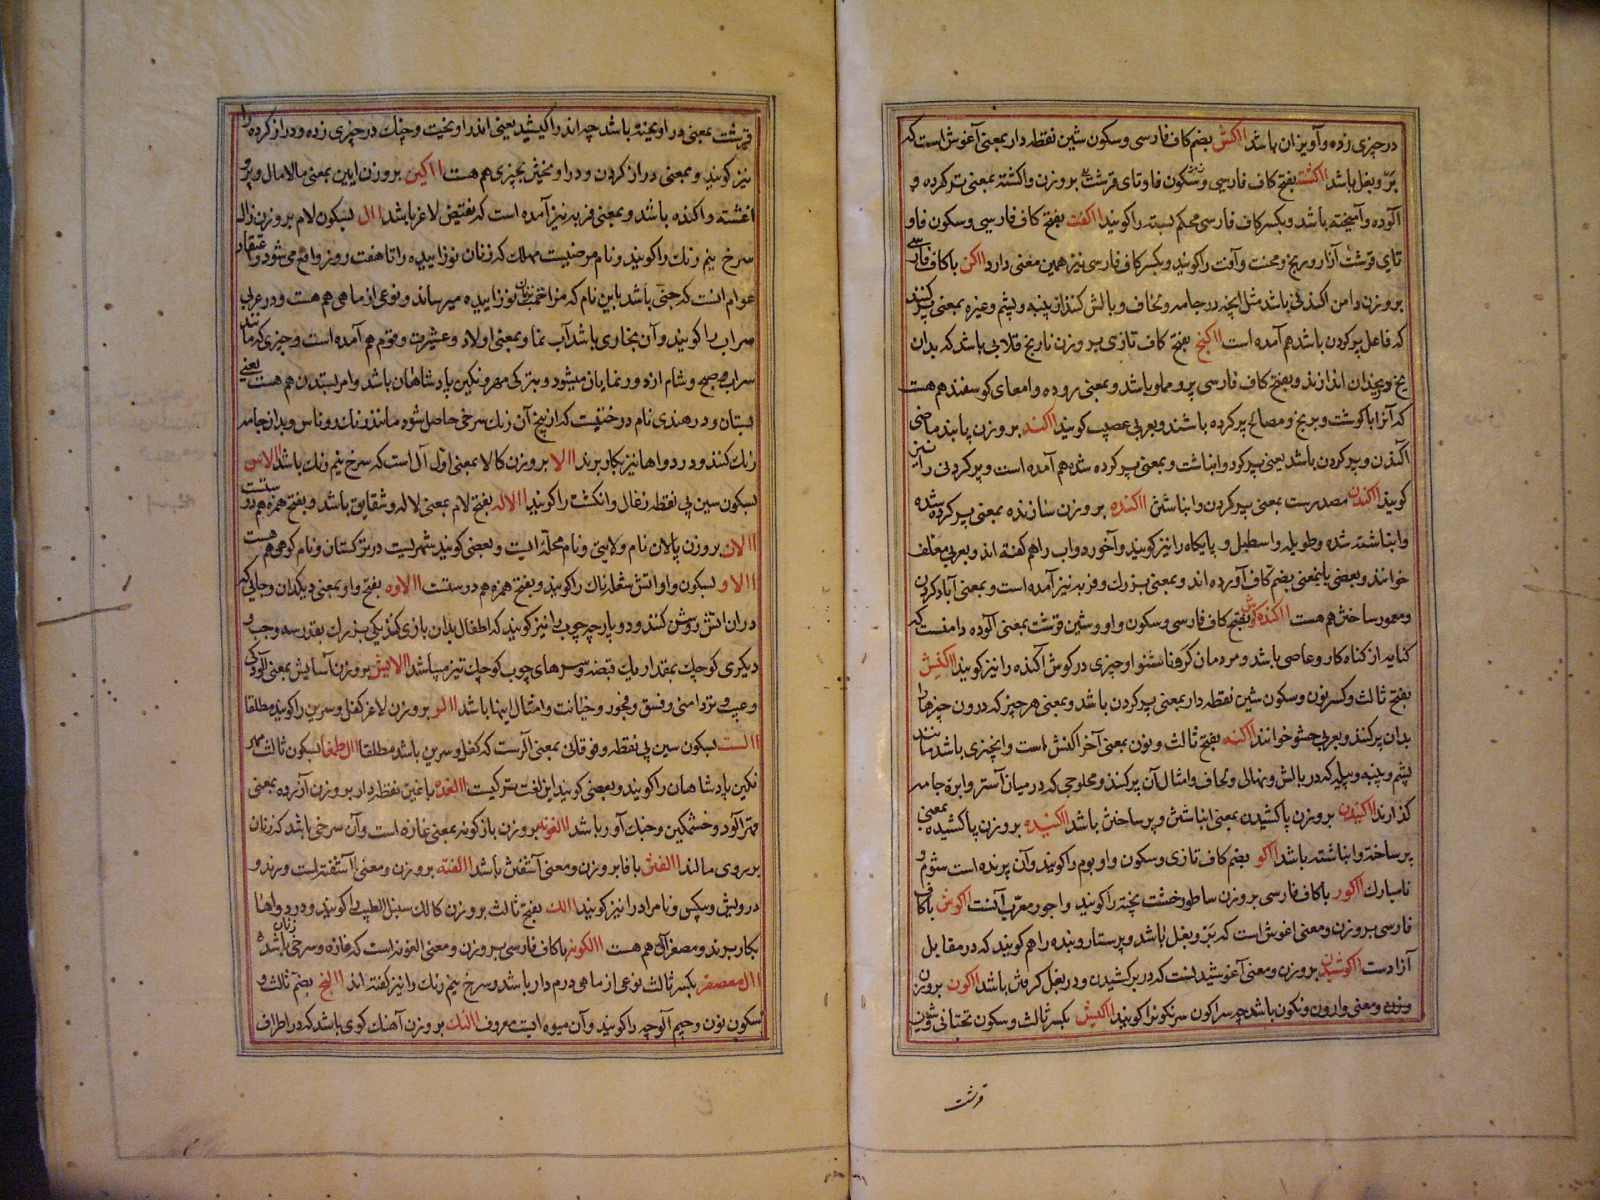 در چیزی زده و آویزان باشد اآکش بضم کاف فارسی و سکون شین نقطه دار بمعنی آغوش است که
بر و بغل باشد اآکشته بفتح کاف فارسی و سکون فا و تای قرشت بر وزن واکشته بمعنی تر کرده و
آلوده و آمیخته باشد و بکسر کاف فارسی محکم بسته را گویند اآکفت بفتح کاف فارسی و سکون فا و
تای قرشت آزار و رنج و محنت و آفت را گویند و بکسر کاف فارسی نیز همین معنی دارد اآکن با کاف فارسی
بر وزن دامن اکندنی باشد مثل آنچه در جامه و لحاف و بالش کنند از پنبه و پشم و غیره بمعنی پر کننده
که فاعل پر کردن باشد هم آمده است اآکنج بفتح کاف تازی بر وزن نارنج قلابی باشد که بدان
یخ در یخدان اندازند و بفتح کاف فارسی پر و مملو باشد و بمعنی روده و امعای گوسفند هم هست
که آنرا با گوشت و برنج و مصالح پر کرده باشند و بعربی عصیب گویند اآکند بر وزن پابند ماضی
آکندن و پر کردن باشد یعنی پر کرد و انباشت و بمعنی پر کرده شده هم آمده است و پر کردنی را نیز
گویند اآکندن مصدر است بمعنی پر کردن و انباشتن اآکنده بر وزن سازنده بمعنی پر کرده شده
و انباشته شده و طویله و اسطبل و پایگاه را نیز گویند و آخور دواب را هم گفته اند و بعربی معلف
خوانند و بعضی باینمعنی بضم کاف آورده اند و بمعنی بزرک و فربه نیز آمده است و بمعنی آباد کردن
و معمور ساختن هم هست اآکنده کوش بفتح کاف فارسی و سکون واو و شین قرشت بمعنی آلوده دامنست که
کنایه از کناه کار و عاصی باشد و مردمان کر و ناشنوا و چیزی در کوش آکنده را نیز گویند اآکنش
بفتح ثالث و کسر نون و سکون شین نقطه دار بمعنی پر کردن باشد و بمعنی هر چیز که درون چیزها را
بدان پر کنند و بعربی حشو خوانند اآکنه بفتح ثالث و نون بمعنی آخر اکنش است و آنچیزی باشد مانند
پشم و پنبه و پیله که در بالش و نهالی و لحاف و امثال آن پر کنند و محلوجی که در میان آستر و ابره جامه
گذارند اآکنیدن بر وزن پاکشیدن بمعنی انباشتن و پر ساختن باشد اآکنیده بر وزن پاکشیده بمعنی
پر ساخته و انباشته باشد اآکو بضم کاف تازی و سکون واو بوم را گویند و آن پرنده است شوم و
نامبارک اآکور با کاف فارسی بر وزن ساطور خشت پخته را گویند و اجور معرب آنست اآکوش با کاف
فارسی بر وزن و معنی اغوش است که بر و بغل باشد و پرستار و بنده را هم گویند که در مقابل
آزادست اآکوشیدن بر وزن و معنی آغوشیدنست که در بر کشیدن و در بغل گرفتن باشد اآکون بر وزن
و معنی وارون و نکون باشد چه سراکون سرنکون را گویند اآکیش بکسر ثالث و سکون تحتانی و شین
قرشت
قرشت بمعنی در اویخته باشد چه اندر اکیشید یعنی اندر اویخت و چنک در چیزی زده و دراز کرده را
نیز گویند و بمعنی دراز کردن و در اویختن بچیزی هم هست اآکین بر وزن ایین بمعنی مالامال و پر و
اغشته و اکنده باشد و بمعنی فربه نیز آمده است که نقیض لاغر باشد اآل بسکون لام بر وزن زال
سرخ نیم رنک را گویند و نام مرضیست مهلک که زنان نوزاییده را تا هفت روز واقع می شود و باعتقاد
عوام آنست که جنی باشد باین نام که مزاحمت بزنان نوزاییده میرساند و نوعی از ماهی هم هست و در عربی
سراب را گویند و آن بخاری باشد آب نما و بمعنی اولاد و عشیرت و قوم هم آمده است و چیزی که مانند
سراب صبح و شام از دور نمایان میشود و بترکی مهر و نکین پادشاهان باشد و امر بستدن هم هست یعنی
بستان و در هندی نام درختیست که از بیخ آن رنک سرخی حاصل شود مانند و بدان جامه
رنک کنند و در دواها نیز بکار برند اآلا بر وزن کالا بمعنی اول آل است که سرخ نیم رنک باشد اآلاس
بسکون سین بی نقطه زغال و انکشت را گویند اآلاله بفتح لام بمعنی لاله و شقایق باشد و بفتح همزه هم درستست
اآلان بر وزن پالان نام ولایتی و نام محله ایست و بعضی گویند شهریست در ترکستان و نام کوهی هم هست
اآلاو بسکون واو اتش شعله ناک را گویند و بفتح همزه هم درستست اآلاوه بفتح واو بمعنی دیکدان و جایی که
در ان اتش روشن کنند و دو پارچه چوب را نیز گویند که اطفال بدان بازی کنند یکی بزرک بقدر سه وجب و
دیکری کوچک بمقدار یک قبضه و سرهای چوب کوچک تیز میباشد اآلایش بر وزن آسایش بمعنی آلودکی
و عیب و تردامنی و فسق و فجور و خیانت و امثال اینها باشد اآلر بر وزن لاغر کفل و سرین را گویند مطلقا
اآلست بسکون سین بی نقطه و فوقانی بمعنی آلرست که کفل و سرین باشد مطلقا اآل طمغا بسکون ثالث مهر
نکین پادشاهان را گویند و بعضی گویند این لغت ترکیست اآلغده با غین نقطه دار بر وزن آزرده بمعنی
قهر آلود و خشمکین و جنک آور باشد اآلغونه بر وزن بازکونه بمعنی غازه است و آن سرخی باشد که زنان
بر روی مالند اآلفتن با فا بر وزن و معنی آشفتن باشد اآلفته بر وزن و معنی آشفته است و رند و
درویش و بیکس و نامراد را نیز گویند اآلک بفتح ثالث بر وزن کالک سنبل الطیب را گویند و در دواها
بکار برند و مصغر آل هم هست اآلکونه با کاف فارسی بر وزن و معنی الغونه است که غازه و سرخی زنان باشد
اآل معصفر بکسر ثالث نوعی از ماهی درم دار باشد و سرخ نیم رنک را نیز گفته اند اآلنج بضم ثالث و
سکون نون و جیم آلوچه را گویند و آن میوه ایست معروف اآلنک بر وزن آهنک کوی باشد که در اطراف